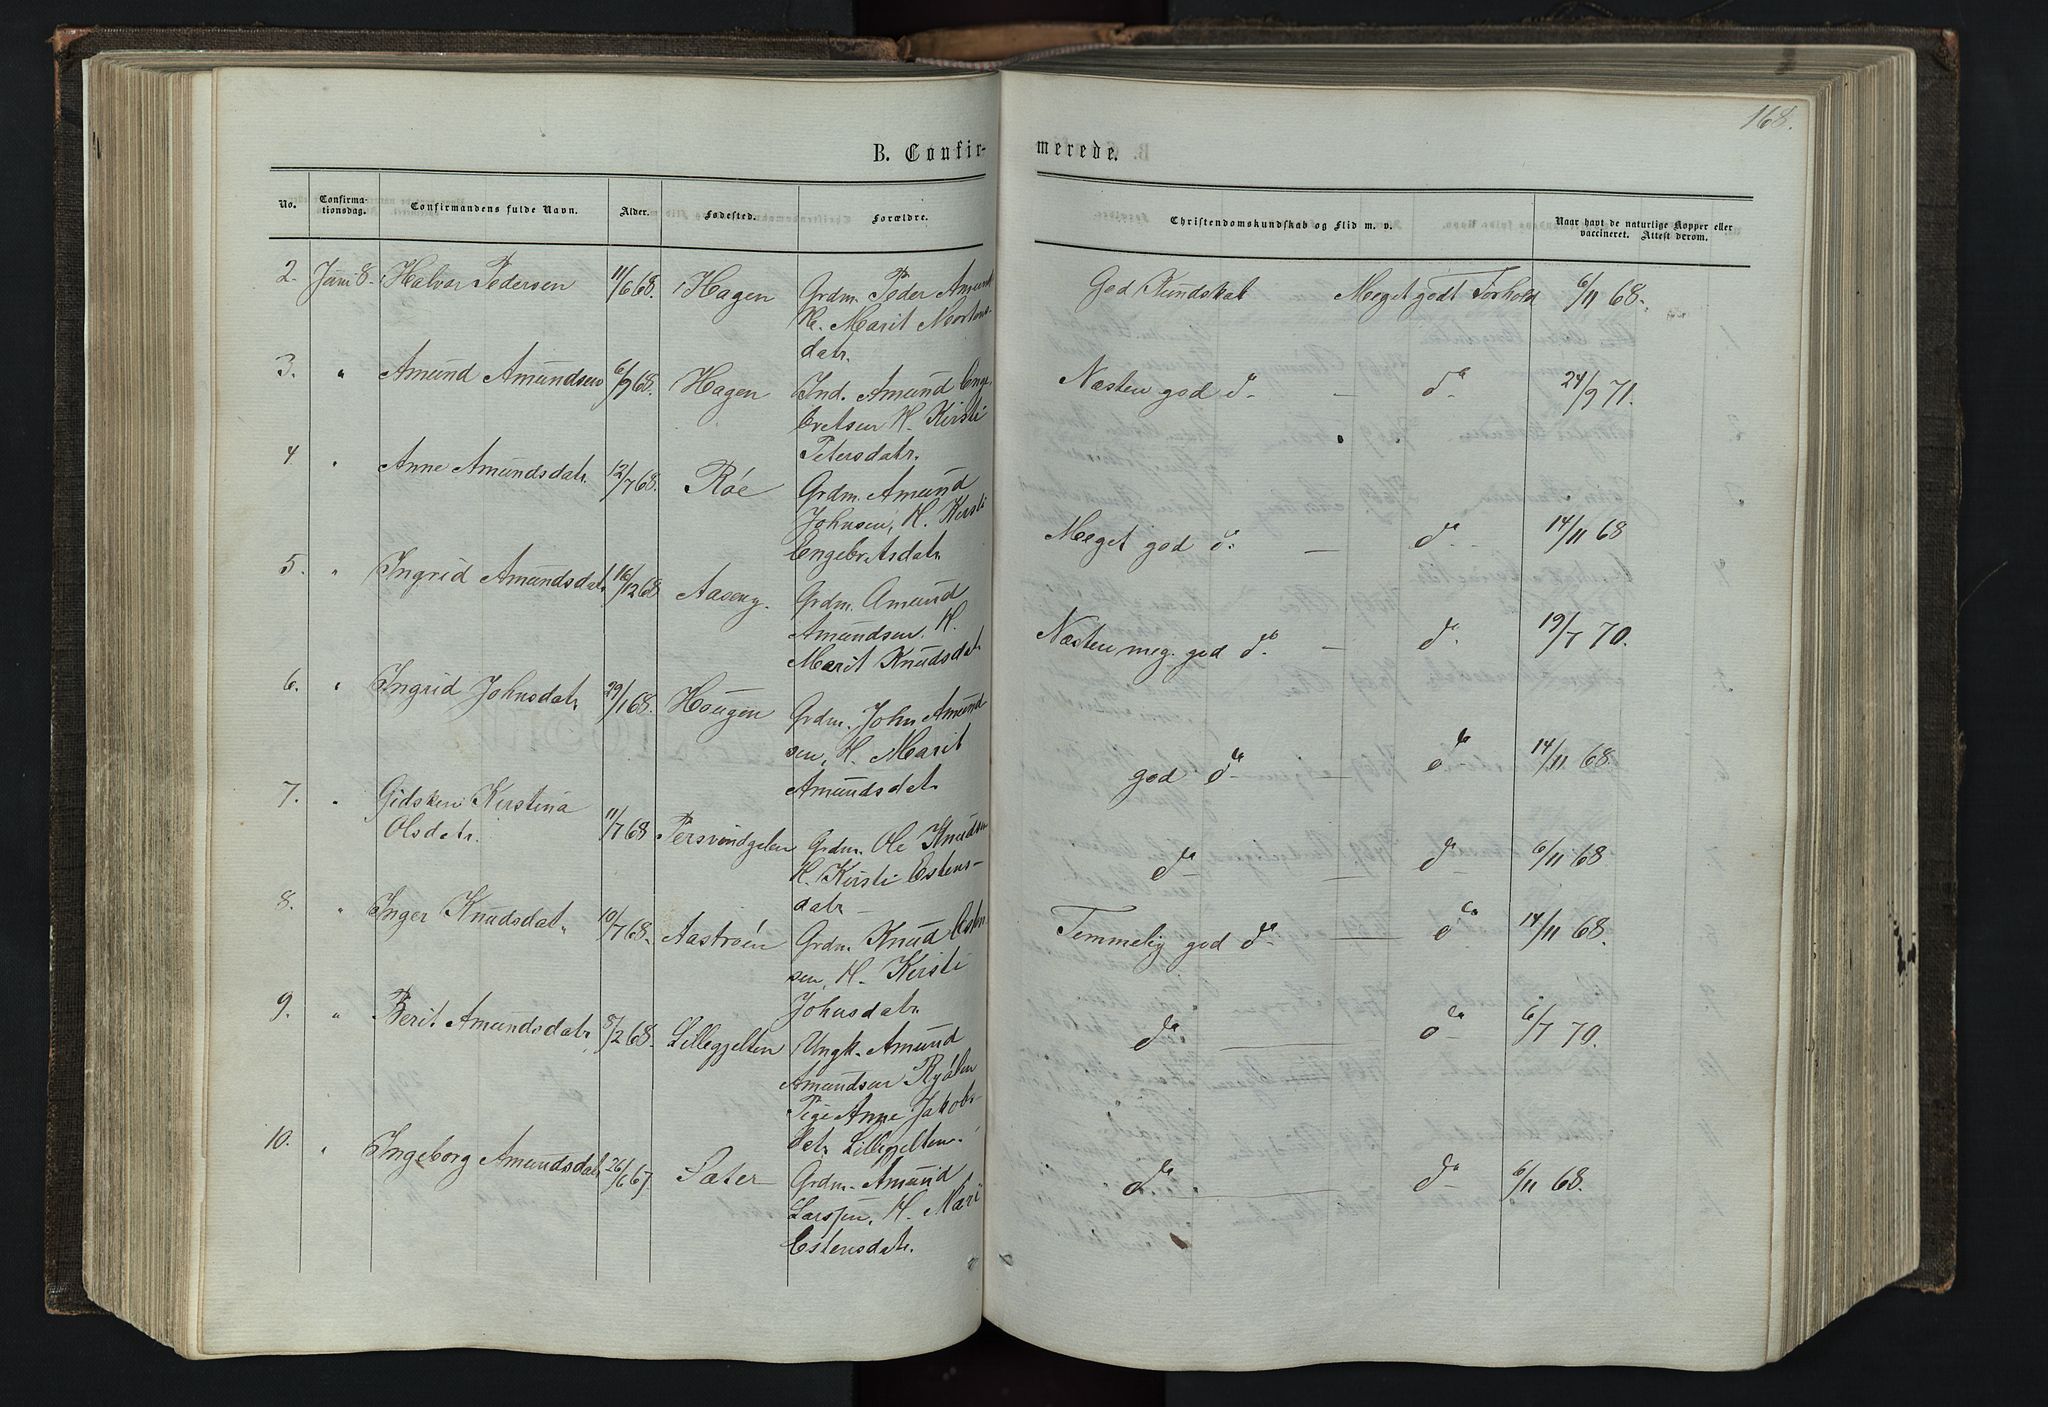 168.
B. Confir-
merede.
No.
Confirma-
tionsdag.
Confirmandens fulde Navn.
Alder.
Fødested.
Forældre.
Christendomskundskab og Flid m. v.
Naar havt de naturlige Kopper eller
vaccineret. Attest derom.
2. Juni 8. Halvor Pedersen 11/6 68. Hagen Grdm. Peder Amund God Kundskab Meget godt Forhold 6/11 68.
H. Marit Mortens-
datr.
3. " Amund Amundsen 6/9 68. Hagen Ind. Amund Enge- Næsten god do. — do. 24/9 71.
bretsen H. Kirsti
Petersdatr.
4. " Anne Amundsdatr. 12/7 68. Røe Grdm. Amund
Johnsen, H. Kirsti
Engebretsdatr. Meget god do. — do. 14/11 68
5. " Ingrid Amundsdatr 16/12 68 Aaseng. Grdm. Amund
Amundsen. H.
Marit Knudsdat Næsten meg. god do. — do. 19/7 70.
6. " Ingrid Johnsdatr. 29/1 68. Hougen Grdm. John Amund
sen, H. Marit
Amundsdatr. god do. — do. 14/11 68.
7. " Gidsken Kerstina
Olsdatr. 11/7 68 Grdm. Ole Knudsen
H. Kirsti Estens-
datr. do. — do. 6/11 68
8. " Inger Knudsdat. 10/7 68. Aastrøen Grdm. Knud Esten
sen, H. Kirsti
Johnsdatr. Temmelig god do. — do. 14/11 68.
9. " Berit Amundsdatr 8/2 68. Lillegjelten Ungk. Amund
Amundsen Ryølen
Pige Anne Jakobs-
datr Lillegjelten. do. — do. 6/7 70.
10. " Ingeborg Amundsdatr 26/6 67. Sæter Grdm. Amund
Larssen, H. Mari
Estensdatr. do. — do. 6/11 68.